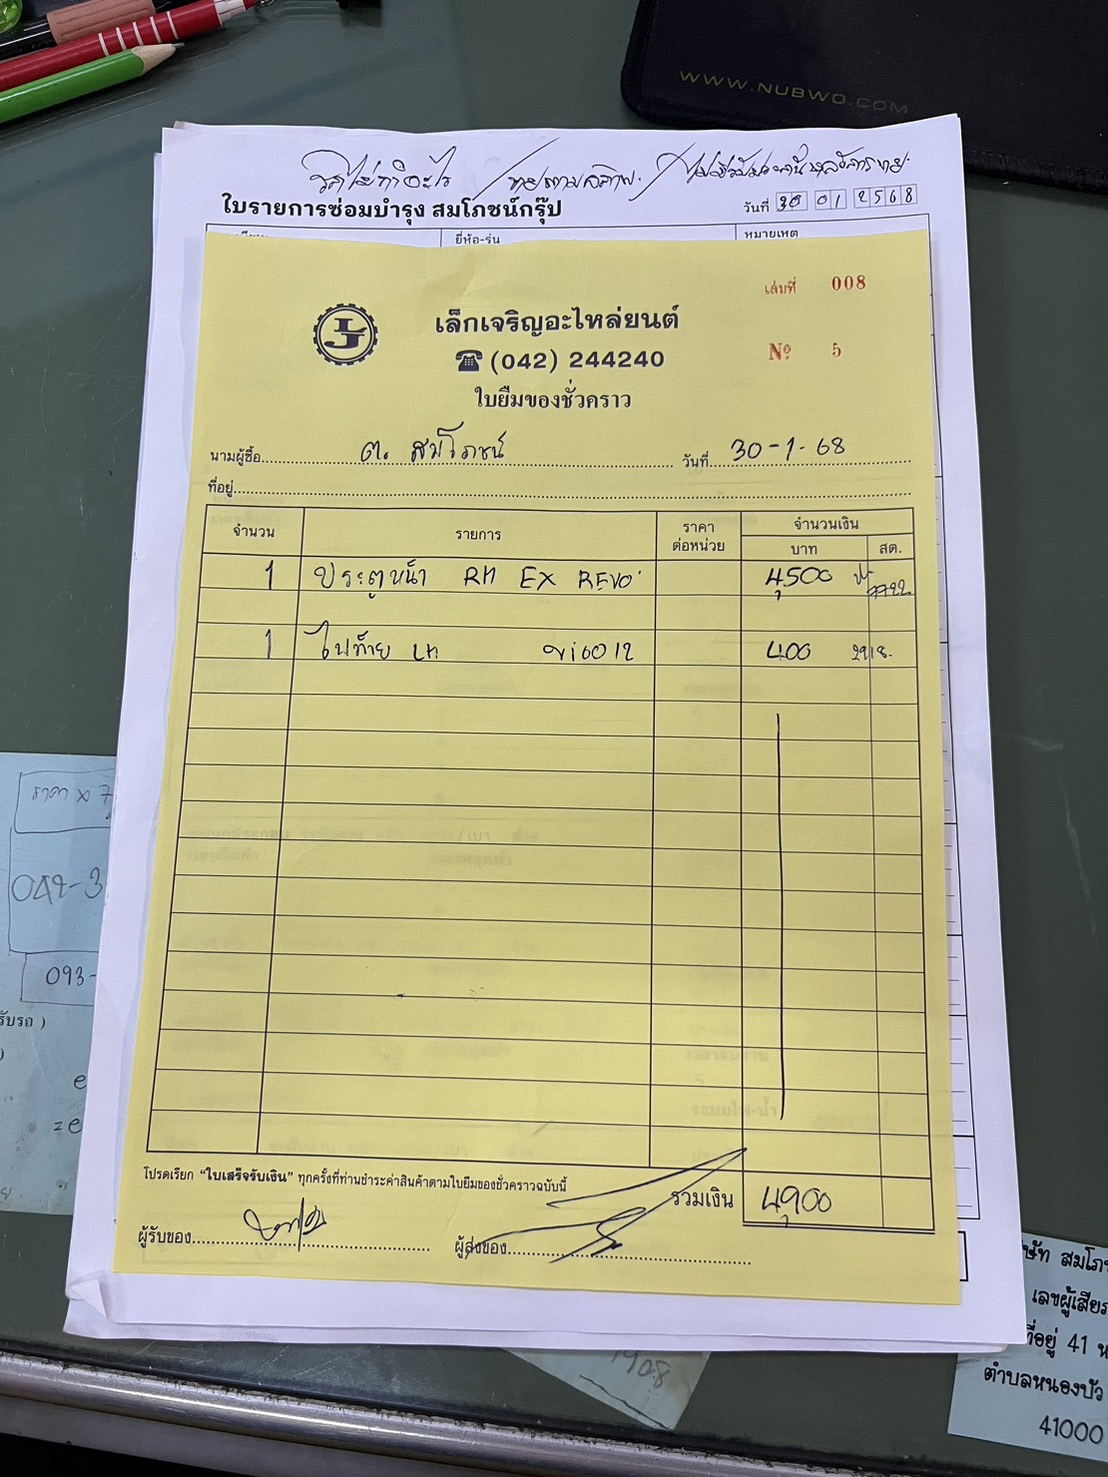 WWW.NUBWO.COM
ใบรายการซ่อมบำรุง สมโภชน์กรุ๊ป
วันที่ 30 01 2568
ยี่ห้อ-รุ่น
หมายเหตุ
เล่มที่ 008
เล็กเจริญอะไหล่ยนต์
(042) 244240
Nº 5
ใบยืมของชั่วคราว
นามผู้ซื้อ ต. สมโภชน์ วันที่ 30-1-68
ที่อยู่
จำนวน รายการ ราคาต่อหน่วย จำนวนเงิน
บาท สต.
1 ประตูหน้า RH EX REVO 4,500
1 ไฟท้าย LH 400
โปรดเรียก “ใบเสร็จรับเงิน” ทุกครั้งที่ท่านชำระค่าสินค้าตามใบยืมของชั่วคราวฉบับนี้
รวมเงิน 4,900
ผู้รับของ
ผู้ส่งของ
ราคา x 7
042-3
093-
รับรถ )
1908
ษัท สมโภช
เลขผู้เสีย
ที่อยู่ 41 ห
ตำบลหนองบัว
41000